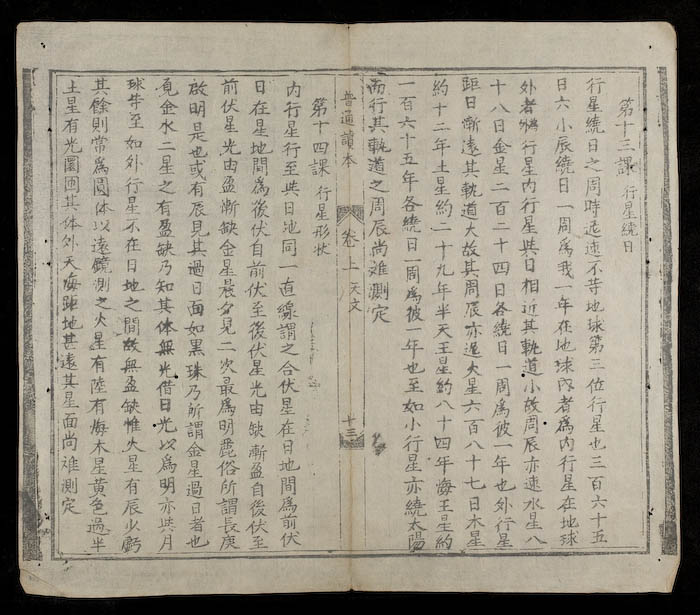 第十三課 行星繞日
行星繞日之周時遲速不等地球第三位行星也三百六十五
日六小辰繞日一周為我一年在地球內者為內行星在地球
外者為外行星內行星與日相近其軌道小故周辰亦速水星八
十八日金星二百二十四日各繞日一周為彼一年也外行星
距日漸遠其軌道大故其周辰亦遲火星六百八十七日木星
約十二年土星約二十九年半天王星約八十四年海王星約
一百六十五年各繞日一周為彼一年也至如小行星亦繞太陽
而行其軌道之周辰尚难測定
普通讀本 卷上 天文 十三
第十四課 行星形状
內行星行至與日地同一直線謂之合伏星在日地間為前伏
日在星地間為後伏自前伏至後伏星光由缺漸盈自後伏至
前伏星光由盈漸缺金星晨夕見二次最為明麗俗所謂長庚
啟明是也或有辰見其過日面如黑珠乃所謂金星過日者也
覓金水二星之有盈缺乃知其体無光借日光以為明亦與月
球等至如外行星不在日地之間故無盈缺惟火星有辰少虧
其餘則常為圓体以遠鏡測之火星有陸有海木星黃色過半
土星有光圜圍其体外天海距地甚遠其星面尚难測定